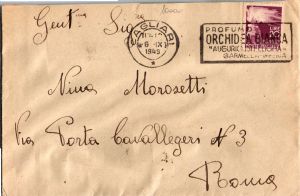 Gent. Sig.na
CAGLIARI
6 IX
1945
PROFUMO
ORCHIDEA BIANCA
Nina Morosetti
Via Porta Cavallegeri N 3
Roma